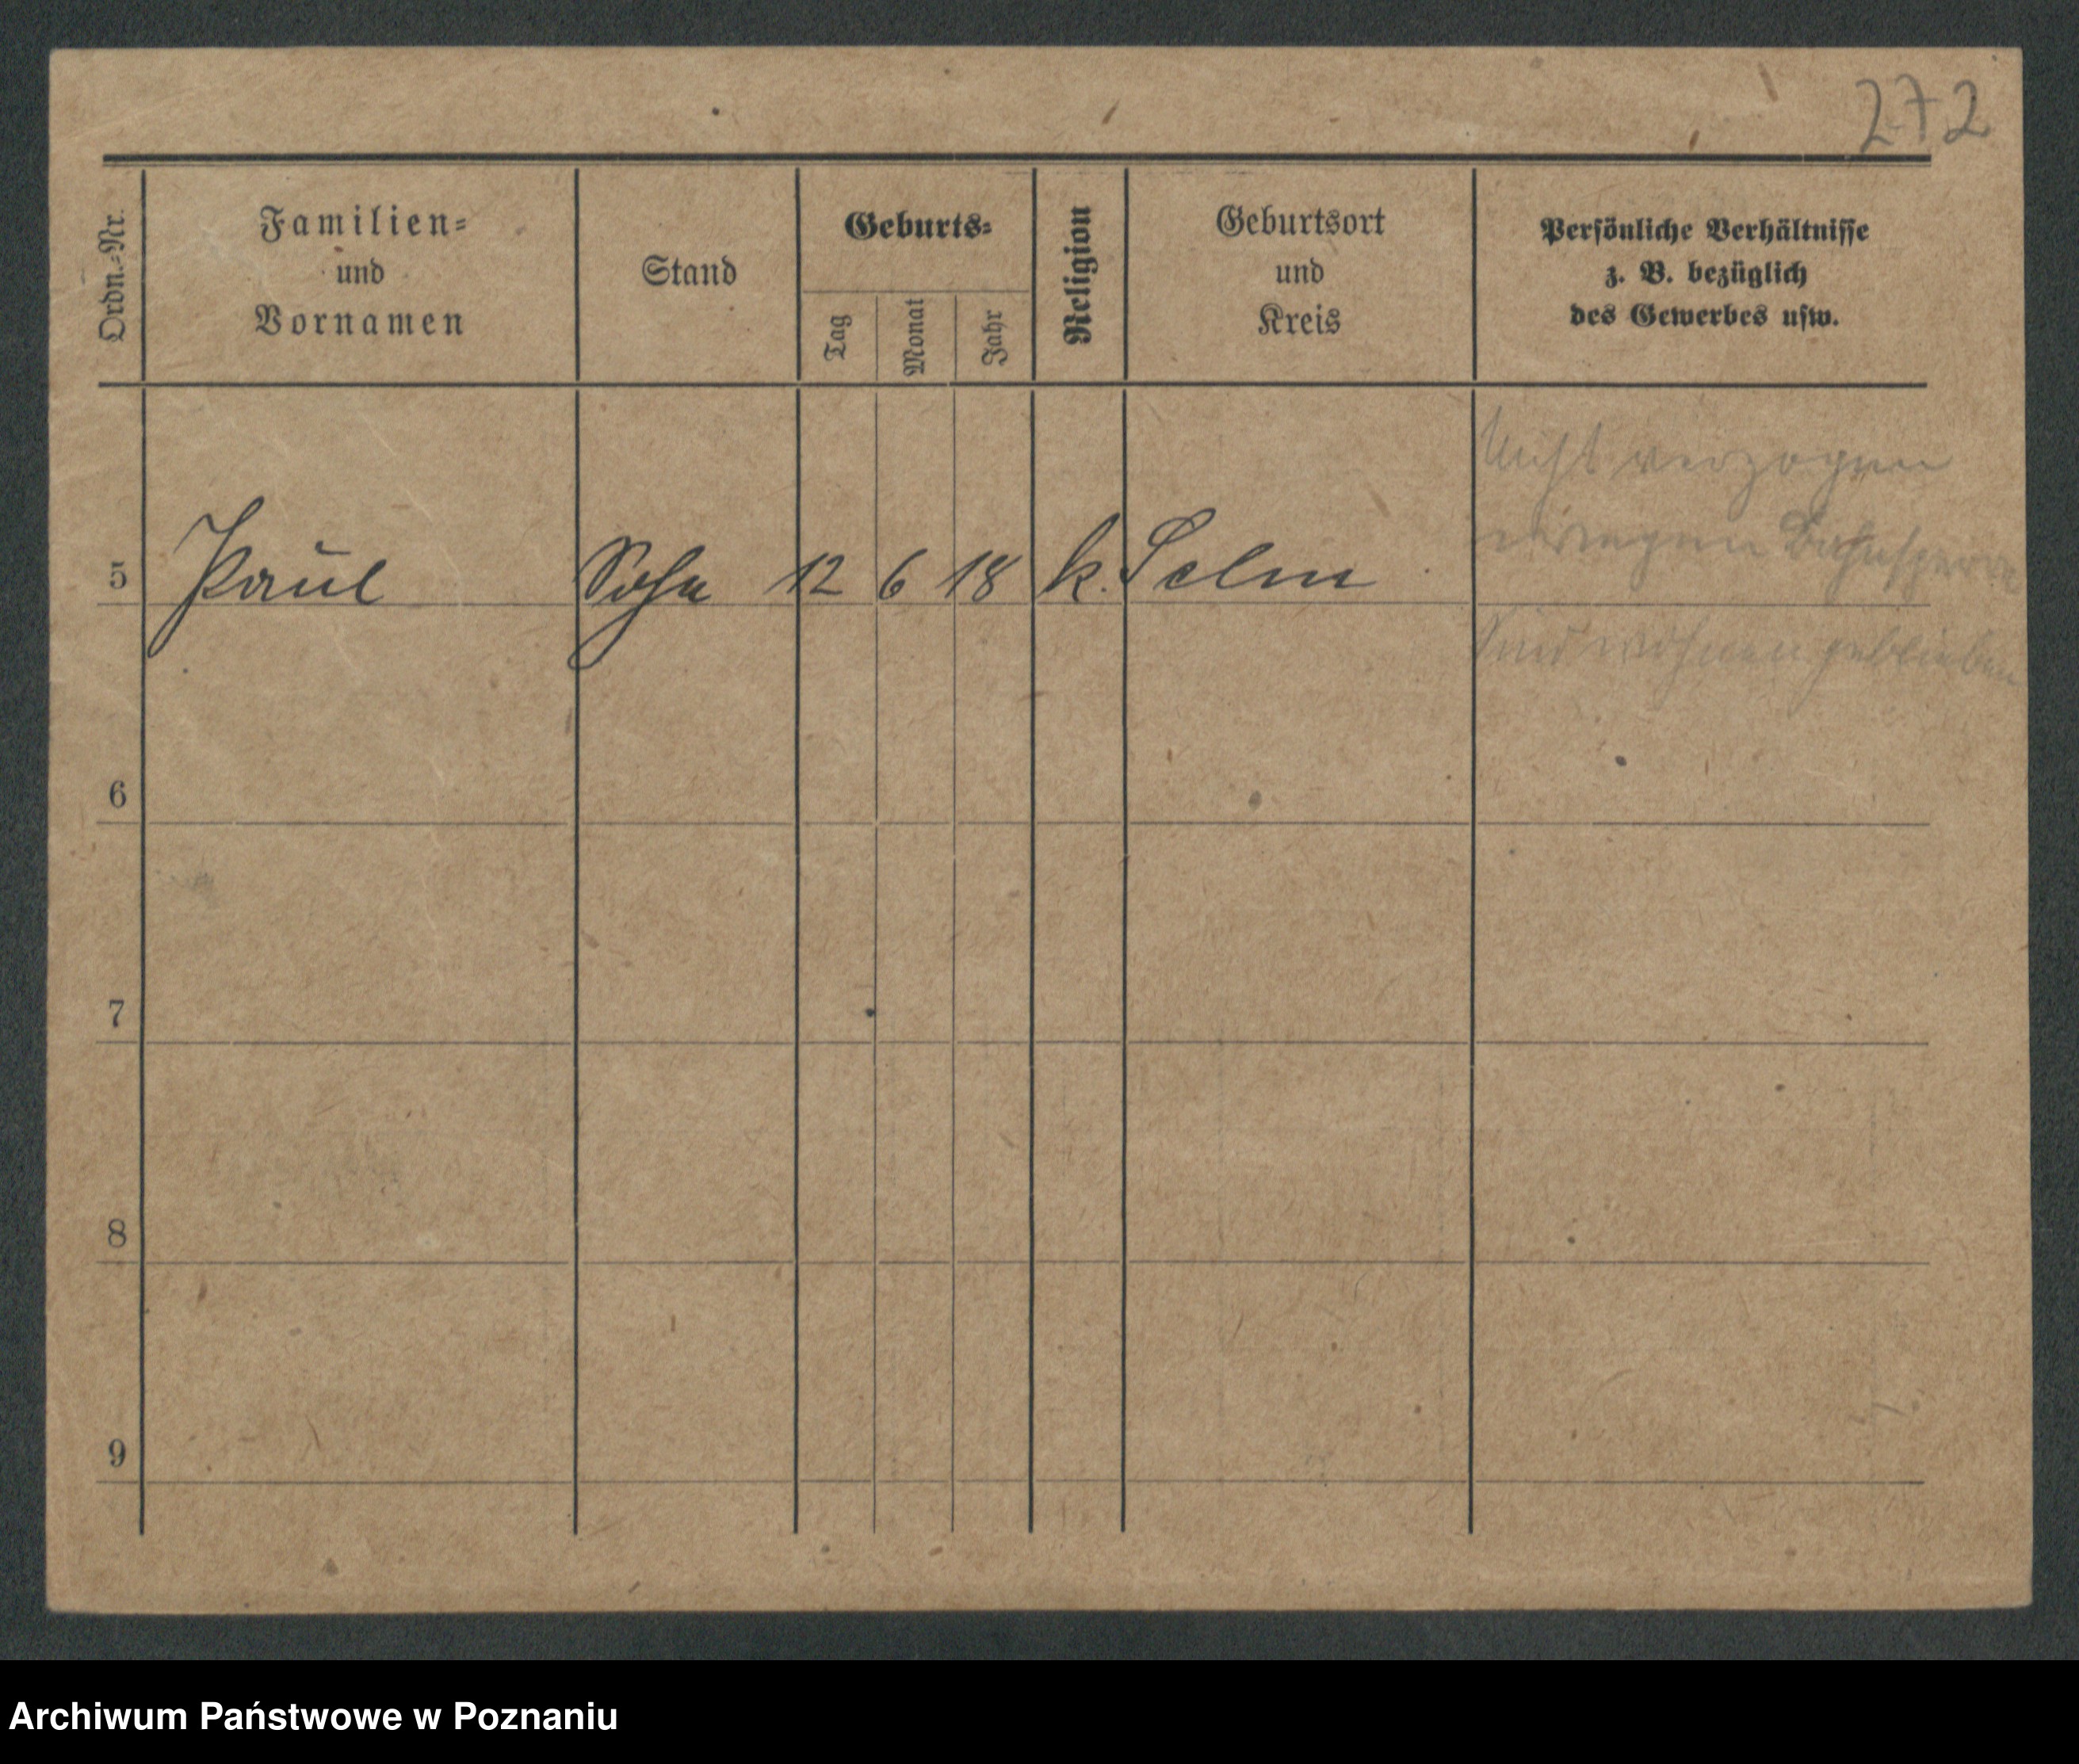 272
Ordn.-Nr.
Familien-
und
Vornamen
Stand
Geburts-
Tag
Monat
Jahr
Religion
Geburtsort
und
Kreis
Persönliche Verhältnisse
z. B. bezüglich
des Gewerbes usw.
Nicht verzogen
wegen Bahnsperre
Sind wohnen geblieben
5 Paul Sohn 12 6 18 k. Selm
6
7
8
9
Archiwum Państwowe w Poznaniu